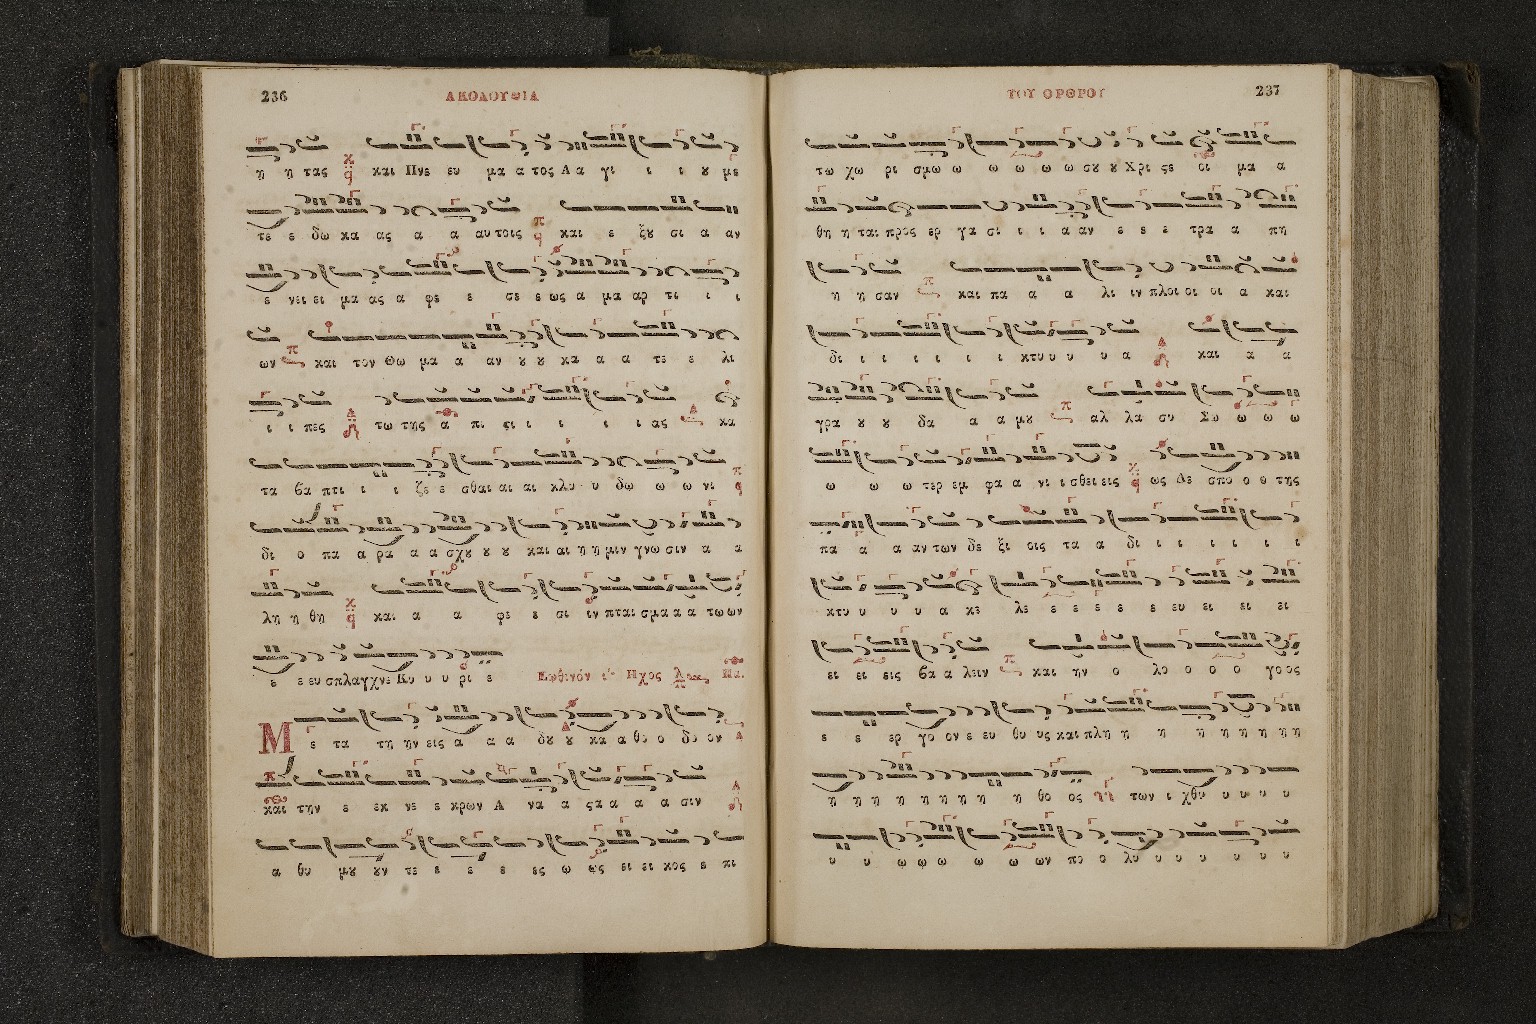 236
ΑΚΟΛΟΥΘΙΑ
η η τας και Πνε ευ μα α τος Α α γι ι ι ȣ με
τε ε δω κα ας α α αυ τοις και ε ξȣ σι α αν
ε νει ει μα ας α φε ε σε ε ως α μα αρ τι ι ι
ων και τον Θω μα α αν ȣ ȣ κα α α τε ε λι
ι ι πες τω της α πι ςι ι ι ι ι ι ας κα
τα βα πτι ι ι ζε ε σθαι αι αι κλυ υ δω ω ω νι
δι ο πα α ρα α α σχȣ ȣ ȣ και αι η η μιν γνω σιν α α
λη η θη και α α φε ε σι ιν πται σμα α α τω ων
ε ε ευ σπλαγχνε Κυ υ υ ρι ε Εωθινόν ι΄ Ηχος
Με τα τη ην εις α α α δȣ ȣ κα α θο ο δο ον
και την ε εκ νε ε κρων Α να α ςα α α α σιν
α θυ μȣ ȣν τε ε ε ε ες ω ως ει ει κος ε πι
ΤΟΥ ΟΡΘΡΟΥ
237
τω χω ρι σμω ω ω ω ω ω σȣ ȣ Χρι ςε οι μα α
θη η ται προς ερ γα σι ι ι α αν ε ε ε τρα α πη
η η σαν και πα α α λι ιν πλοι οι οι α και
δι ι ι ι ι ι ι κτυ υ υ υ α και α α
γρα ȣ ȣ δα α α μȣ αλ λα συ Σω ω ω ω
ω ω ω τερ εμ φα α νι ι σθει εις ως Δε σπο ο ο της
πα α α αν των δε ξι οις τα α δι ι ι ι ι ι ι
κτυ υ υ υ α κε λε ε ε ε ε ε ε ευ ει ει ει
ει ει εις βα α λειν και ην ο λο ο ο ο γο ος
ε ε ερ γο ον ε ευ θυ υς και πλη η η η η η η η
η η η η η η η η η θο ος των ι χθυ υ υ υ υ
υ υ ω ω ω ω ω ων πο ο λυ υ υ υ υ υ υ